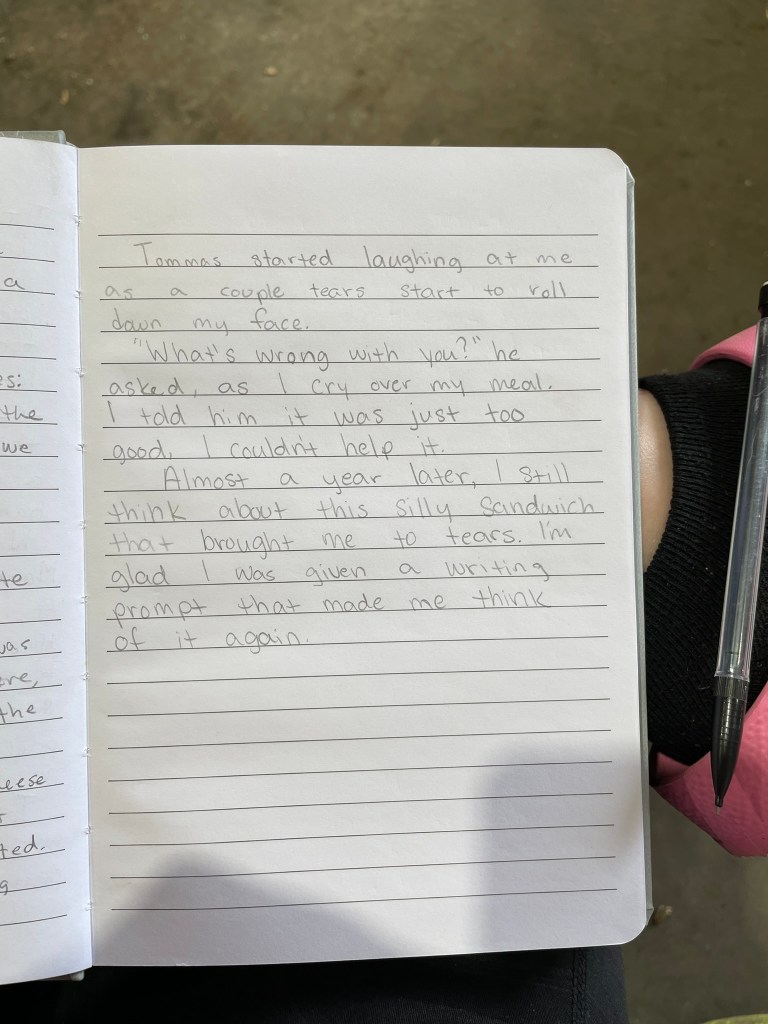 a
es:
the
we
te
was
ere,
the
eese
ted.
g
Tommas started laughing at me
as a couple tears start to roll
down my face.
"What's wrong with you?" he
asked, as I cry over my meal.
I told him it was just too
good, I couldn't help it.
Almost a year later, I still
think about this silly sandwich
that brought me to tears. I'm
glad I was given a writing
prompt that made me think
of it again.